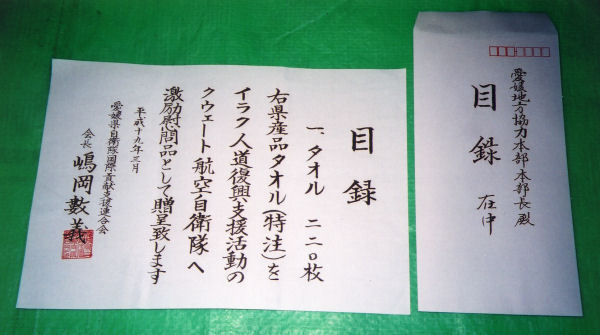 目録
一、タオル 二二〇枚
右県産品タオル(特注)を
イラク人道復興支援活動の
クウェート航空自衛隊へ
激励慰問品として贈呈致します
平成十九年三月
愛媛県自衛隊国際貢献支援連合会
会長 嶋岡數義
愛媛地方協力本部本部長殿
目録 在中